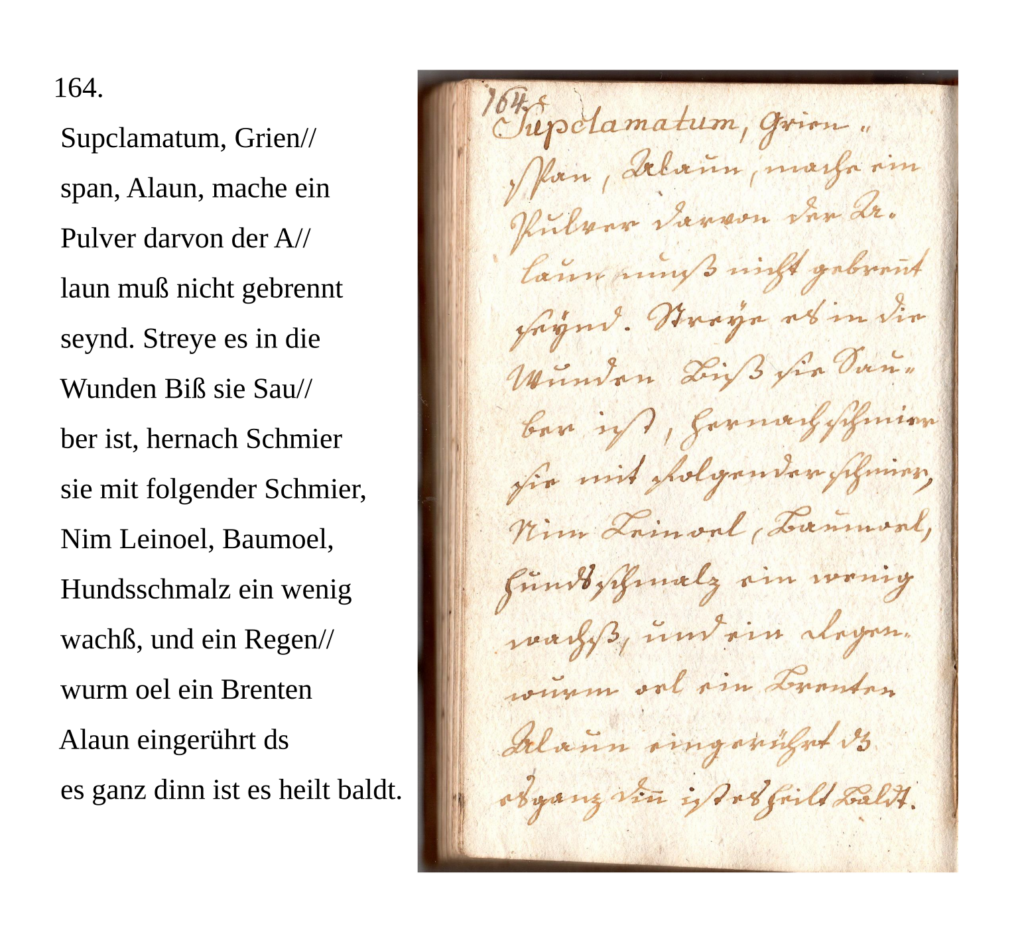 164.
Supclamatum, Grien//
span, Alaun, mache ein
Pulver darvon der A//
laun muß nicht gebrennt
seynd. Streye es in die
Wunden Biß sie Sau//
ber ist, hernach Schmier
sie mit folgender Schmier,
Nim Leinoel, Baumoel,
Hundsschmalz ein wenig
wachß, und ein Regen//
wurm oel ein Brenten
Alaun eingerührt ds
es ganz dinn ist es heilt baldt.
164.
Supclamatum, Grien„
span, Alaun, mache ein
Pulver darvon der A„
laun muß nicht gebreñt
seynd. Streye es in die
Wunden Biß sie Sau„
ber ist, hernach schmier
sie mit folgender schmier,
Nim Leinoel, Baumoel,
hundsschmalz ein wenig
wachß, und ein Regen„
wurm oel ein Brenten
Alaun eingerührt ds
es ganz diñ ist es heilt Baldt.